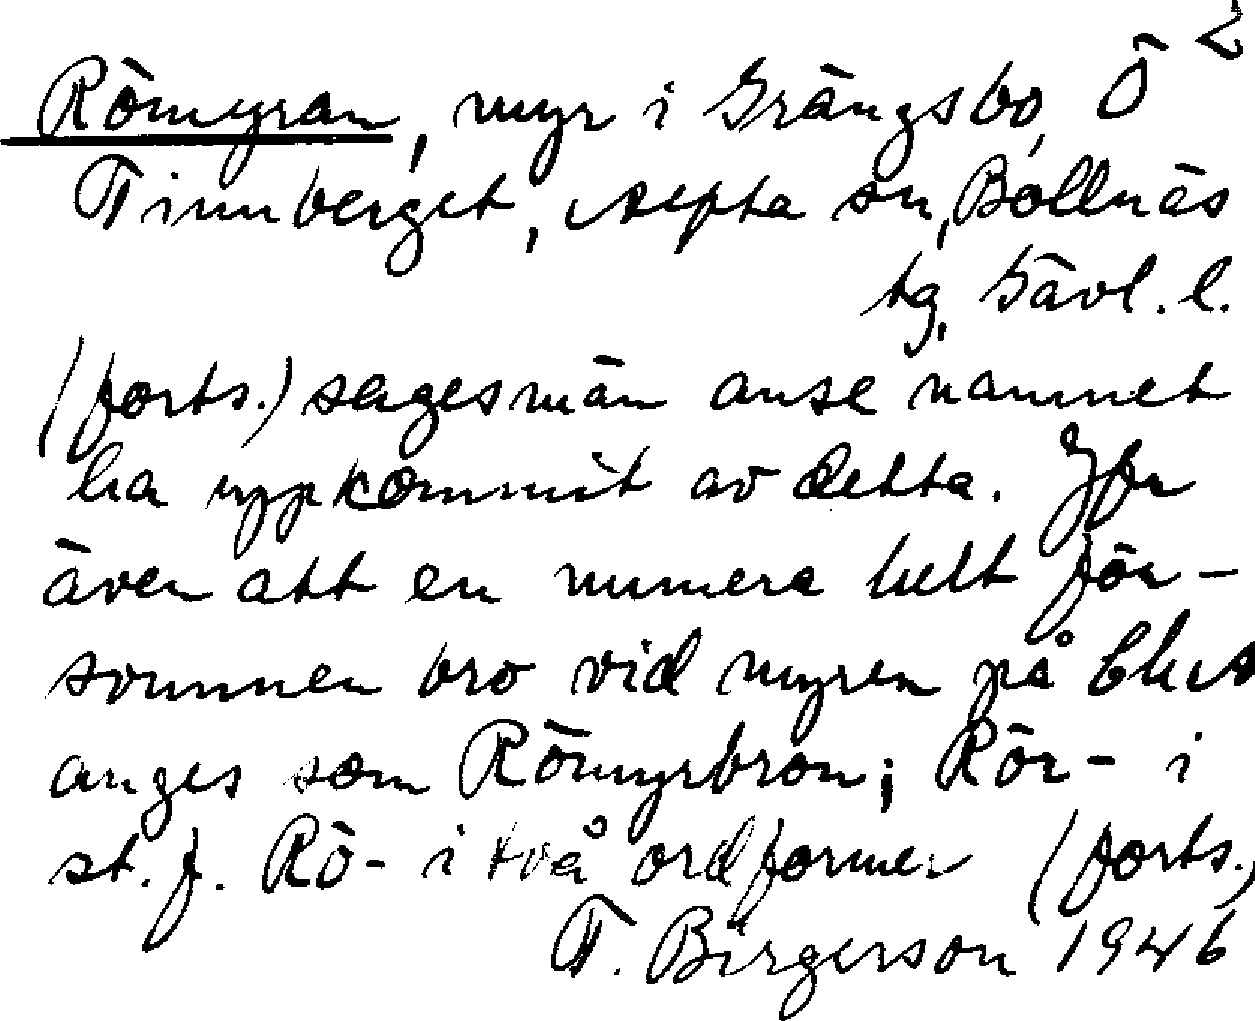 2
Römyran, myr i Grängsbo, Ö
Finnberget, Alfta sn, Bollnäs
tg, Gävl. l.
(forts.) sagesmän anse namnet
ha uppkommit av detta. Jfr
även att en numera helt för-
svunnen bro vid myren på Ek.
anges som Römyrbron; Rör- i
st. f. Rö- i två ordformer (forts.)
F. Birgerson 1946